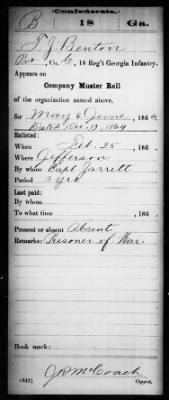 Confederate.
B 18 Ga.
T. J. Benton
Pvt, Co. C, 18 Reg't Georgia Infantry.
Appears on
Company Muster Roll
of the organization named above,
for May & June, 1864.
Dated Dec. 19, 1864
Enlisted:
When Feb. 25, 186 .
Where Jefferson
By whom Capt Jarrett
Period 3 Yrs
Last paid:
By whom
To what time , 186 .
Present or absent Absent
Remarks: Prisoner of War
Book mark:
(642) J R McCoach
Copyist.